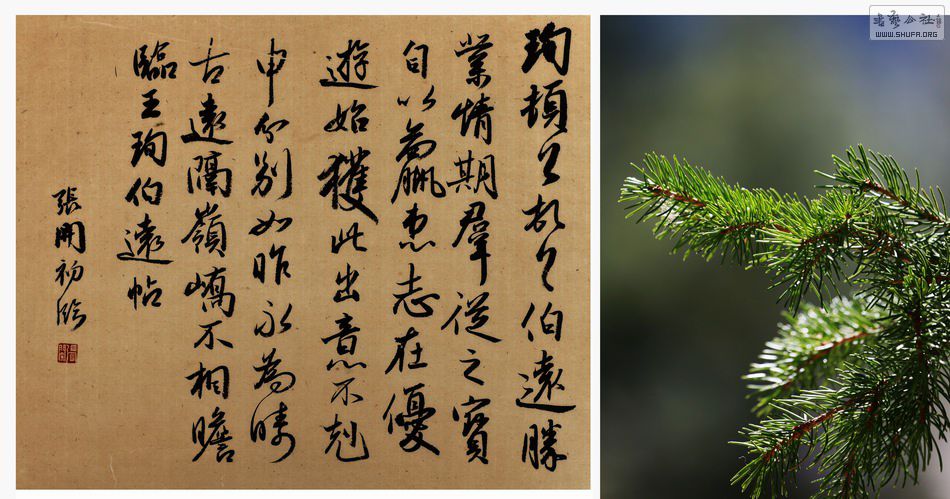 珣頓首頓首伯遠勝
業情期羣從之寶
自以羸患志在優
遊始獲此出意不剋
申分別如昨永為疇
古遠隔嶺嶠不相瞻
臨王珣伯遠帖
張開初臨
書藝公社
WWW.SHUFA.ORG